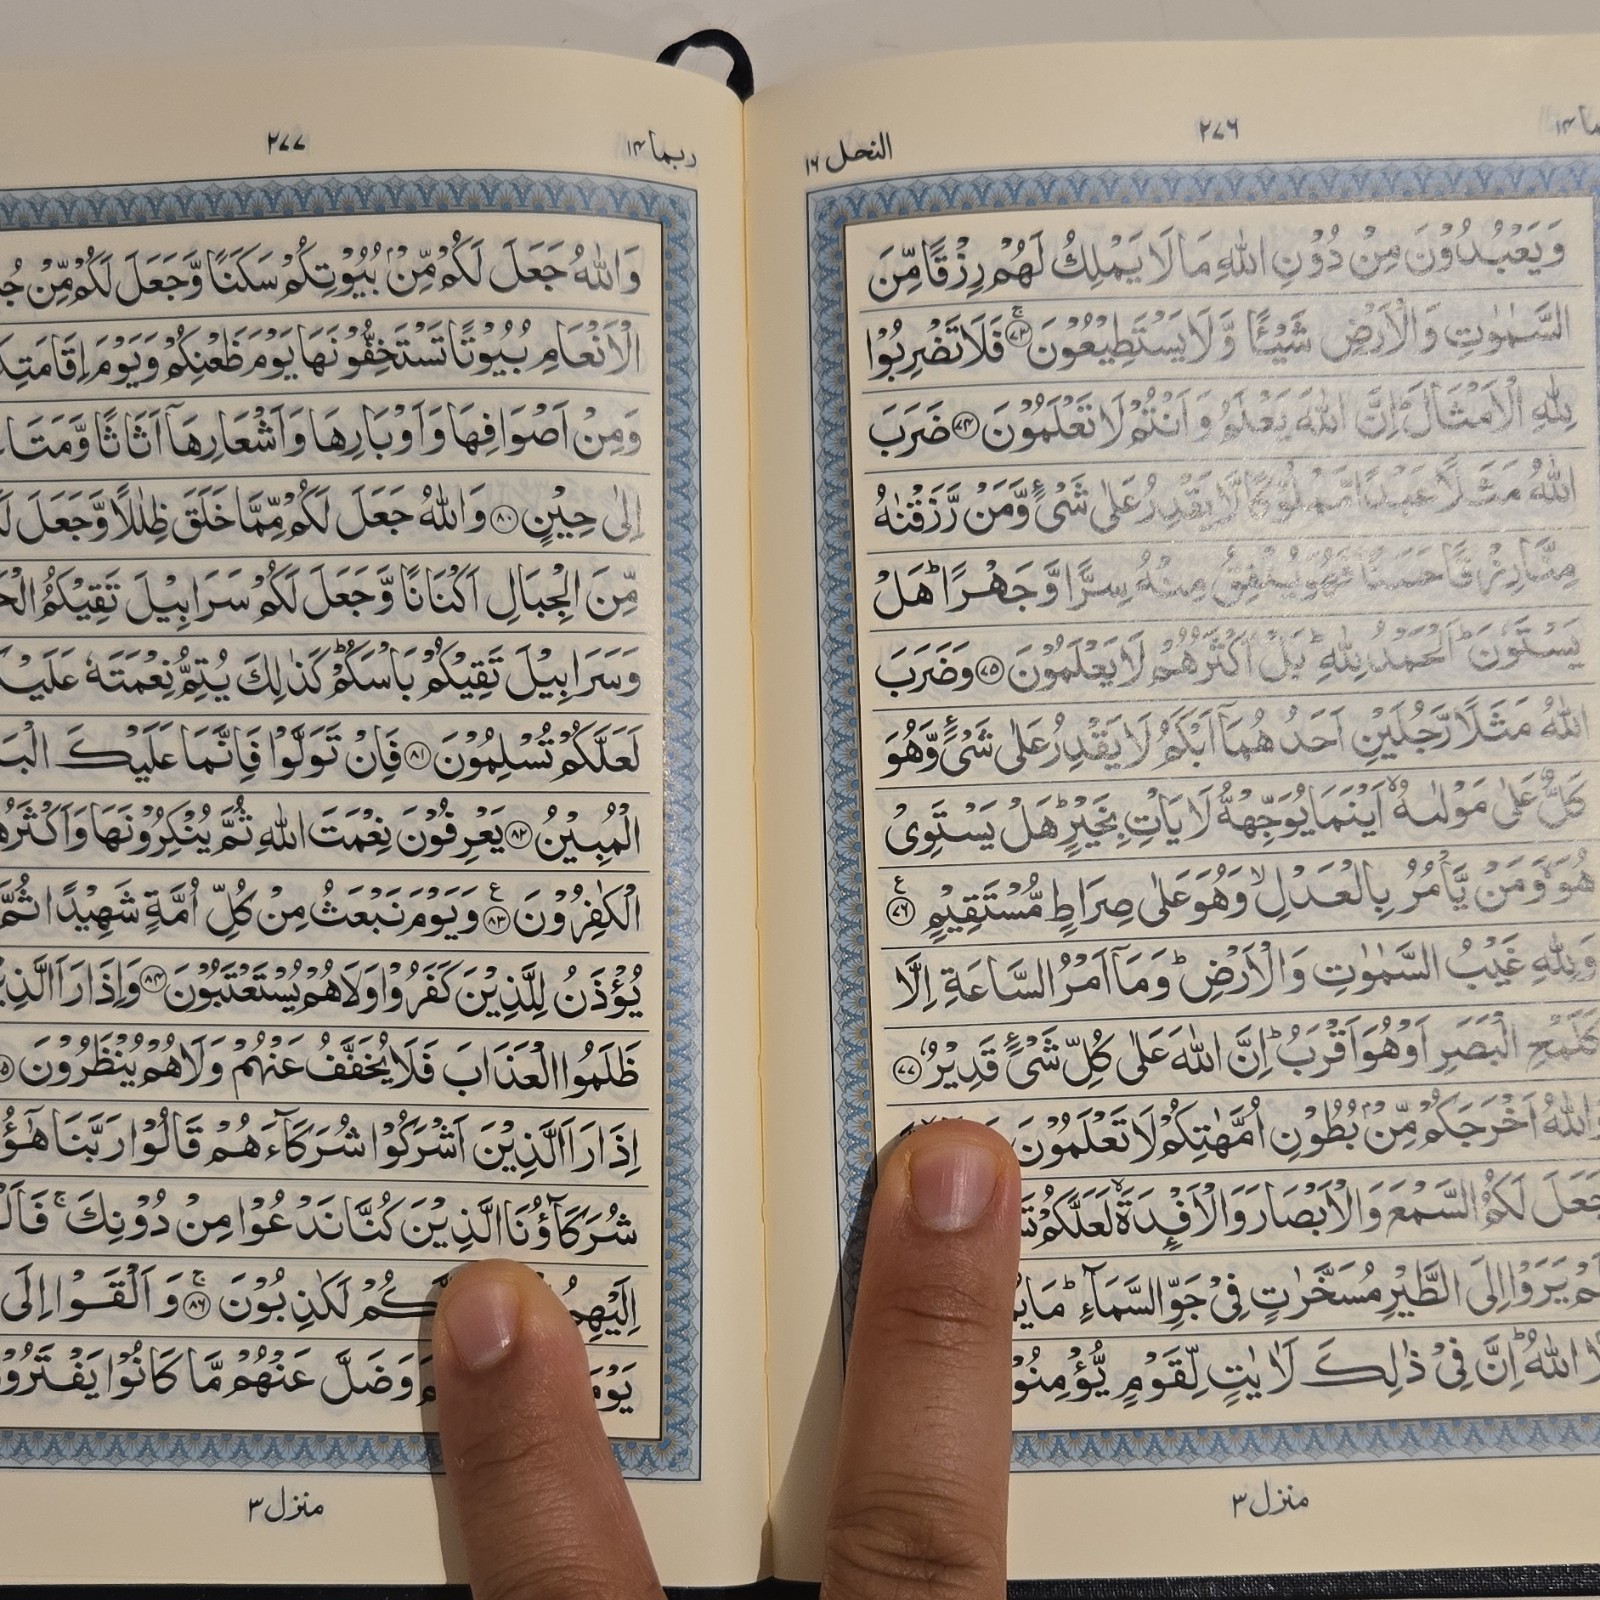 النحل ١٦
٢٧٦
وَيَعْبُدُوْنَ مِنْ دُوْنِ اللّٰهِ مَا لَا يَمْلِكُ لَهُمْ رِزْقًا مِّنَ
السَّمٰوٰتِ وَالْاَرْضِ شَيْـًٔا وَّلَا يَسْتَطِيْعُوْنَ ۚ‏﴿۷۳﴾ فَلَا تَضْرِبُوْا
لِلّٰهِ الْاَمْثَالَ ؕ اِنَّ اللّٰهَ يَعْلَمُ وَاَنْتُمْ لَا تَعْلَمُوْنَ ﴿۷۴﴾ ضَرَبَ
اللّٰهُ مَثَلًا عَبْدًا مَّمْلُوْكًا لَّا يَقْدِرُ عَلٰى شَىْءٍ وَّمَنْ رَّزَقْنٰهُ
مِنَّا رِزْقًا حَسَنًا فَهُوَ يُنْفِقُ مِنْهُ سِرًّا وَّجَهْرًا ؕ هَلْ
يَسْتَوٗنَ ؕ اَلْحَمْدُ لِلّٰهِ ؕ بَلْ اَكْثَرُهُمْ لَا يَعْلَمُوْنَ ﴿۷۵﴾ وَضَرَبَ
اللّٰهُ مَثَلًا رَّجُلَيْنِ اَحَدُهُمَاۤ اَبْكَمُ لَا يَقْدِرُ عَلٰى شَىْءٍ وَّهُوَ
كَلٌّ عَلٰى مَوْلٰىهُ ۙ اَيْنَمَا يُوَجِّهْهُّ لَا يَاْتِ بِخَيْرٍ ؕ هَلْ يَسْتَوِىْ
هُوَ ۙ وَمَنْ يَّاْمُرُ بِالْعَدْلِ ۙ وَهُوَ عَلٰى صِرَاطٍ مُّسْتَقِيْمٍ ﴿۷۶﴾ ع
وَلِلّٰهِ غَيْبُ السَّمٰوٰتِ وَالْاَرْضِ ؕ وَمَاۤ اَمْرُ السَّاعَةِ اِلَّا
كَلَمْحِ الْبَصَرِ اَوْ هُوَ اَقْرَبُ ؕ اِنَّ اللّٰهَ عَلٰى كُلِّ شَىْءٍ قَدِيْرٌ ﴿۷۷﴾
وَاللّٰهُ اَخْرَجَكُمْ مِّنْۢ بُطُوْنِ اُمَّهٰتِكُمْ لَا تَعْلَمُوْنَ
جَعَلَ لَكُمُ السَّمْعَ وَالْاَبْصَارَ وَالْاَفْـِٕدَةَ ۙ لَعَلَّكُمْ
يَرَوْا اِلَى الطَّيْرِ مُسَخَّرٰتٍ فِىْ جَوِّ السَّمَآءِ ؕ مَا
اللّٰهُ ؕ اِنَّ فِىْ ذٰلِكَ لَاٰيٰتٍ لِّقَوْمٍ يُّؤْمِنُوْ
منزل ٣
ربما ١٤
٢٧٧
وَاللّٰهُ جَعَلَ لَكُمْ مِّنْۢ بُيُوْتِكُمْ سَكَنًا وَّجَعَلَ لَكُمْ مِّنْ
الْاَنْعَامِ بُيُوْتًا تَسْتَخِفُّوْنَهَا يَوْمَ ظَعْنِكُمْ وَيَوْمَ
وَمِنْ اَصْوَافِهَا وَاَوْبَارِهَا وَاَشْعَارِهَاۤ اَثَاثًا وَّمَتَا
اِلٰى حِيْنٍ ﴿۸۰﴾ وَاللّٰهُ جَعَلَ لَكُمْ مِّمَّا خَلَقَ ظِلٰلًا وَّجَعَلَ
مِّنَ الْجِبَالِ اَكْنَانًا وَّجَعَلَ لَكُمْ سَرَابِيْلَ تَقِيْكُمُ
وَسَرَابِيْلَ تَقِيْكُمْ بَاْسَكُمْ ؕ كَذٰلِكَ يُتِمُّ نِعْمَتَهٗ
لَعَلَّكُمْ تُسْلِمُوْنَ ﴿۸۱﴾ فَاِنْ تَوَلَّوْا فَاِنَّمَا عَلَيْكَ
الْمُبِيْنُ ﴿۸۲﴾ يَعْرِفُوْنَ نِعْمَتَ اللّٰهِ ثُمَّ يُنْكِرُوْنَهَا
الْكٰفِرُوْنَ ﴿۸۳﴾ ع وَيَوْمَ نَبْعَثُ مِنْ كُلِّ اُمَّةٍ شَهِيْدًا ثُمَّ
يُؤْذَنُ لِلَّذِيْنَ كَفَرُوْا وَلَا هُمْ يُسْتَعْتَبُوْنَ ﴿۸۴﴾ وَاِذَا رَاَ
ظَلَمُوا الْعَذَابَ فَلَا يُخَفَّفُ عَنْهُمْ وَلَا هُمْ يُنْظَرُوْنَ
اِذَا رَاَ الَّذِيْنَ اَشْرَكُوْا شُرَكَآءَهُمْ قَالُوْا رَبَّنَا
شُرَكَآؤُنَا الَّذِيْنَ كُنَّا نَدْعُوْا مِنْ دُوْنِكَ ۚ
لَكٰذِبُوْنَ ۚ﴿۸۶﴾ وَاَلْقَوْا اِلَى
وَضَلَّ عَنْهُمْ مَّا كَانُوْا
منزل ٣